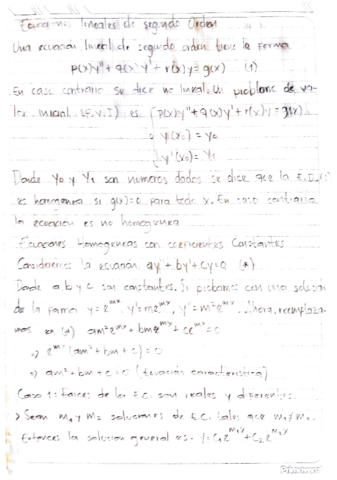 Ecuaciones lineales de segundo Orden
Una ecuación lineal de segundo orden tiene la forma
p(x)y'' + q(x)y' + r(x)y = g(x) (1)
En caso contrario se dice no lineal. Un problema de va-
lor inicial (P.V.I) es { p(x)y'' + q(x)y' + r(x)y = g(x)
y(x₀) = y₀
y'(x₀) = y₁
Donde y₀ y y₁ son números dados se dice que la E.D.
es homogenea si g(x)=0 para todo x. En caso contrario
la ecuación es no homogenea
Ecuaciones Homogeneas con coeficientes Constantes
Consideremos la ecuación ay'' + by' + cy = 0 (*)
Donde a b y c son constantes. Si probamos con una solución
de la forma y = e^mx, y' = me^mx, y'' = m²e^mx. Ahora, reemplaza-
mos en (*) am²e^mx + bme^mx + ce^mx = 0
⇒ e^mx (am² + bm + c) = 0
⇒ am² + bm + c = 0 (Ecuación caracteristica)
Caso 1: Raices de la E.C. son reales y diferentes.
> Sean m₁ y m₂ soluciones de E.C. tales que m₁ ≠ m₂.
Entonces la solución general es. y = C₁e^m₁x + C₂e^m₂x